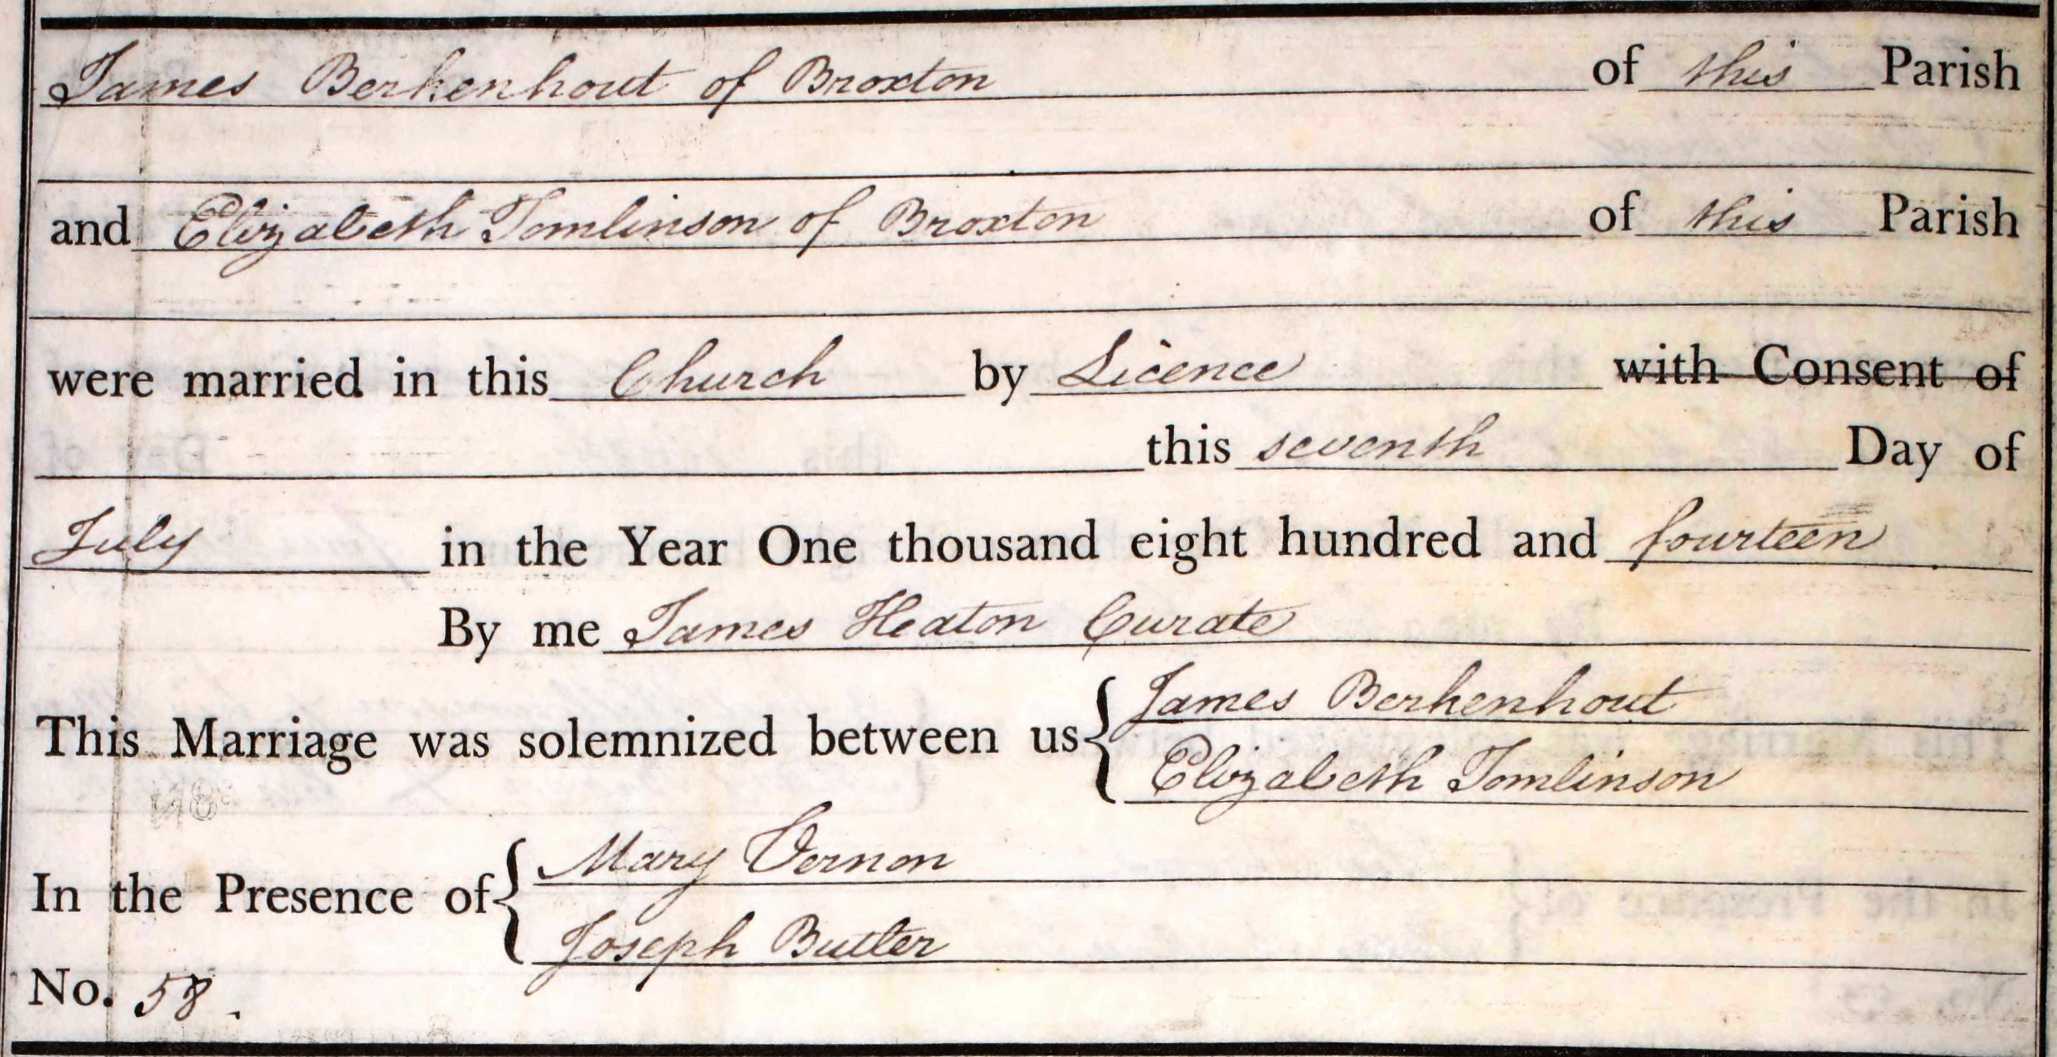 James Berkenhout of Broxton of this Parish
and Elizabeth Tomlinson of Broxton of this Parish
were married in this Church by Licence with Consent of
this seventh Day of
July in the Year One thousand eight hundred and fourteen
By me James Heaton Curate
This Marriage was solemnized between us { James Berkenhout
Elizabeth Tomlinson
In the Presence of { Mary Vernon
Joseph Butler
No. 58.